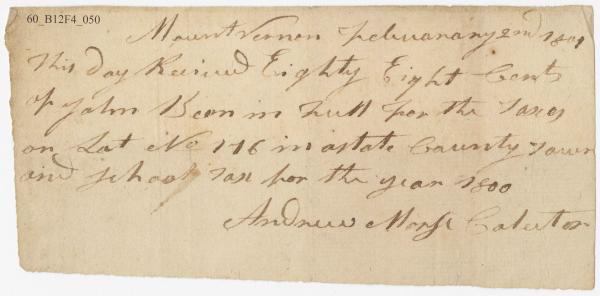 60_B12F4_050
Mount Vernon Februarary 2nd 1801
This day Receiued Eighty Eight Cents
of John Bean in full for the Taxes
on Lot No 116 in astate County Town
and school tax for the year 1800
Andrew Morse Colector